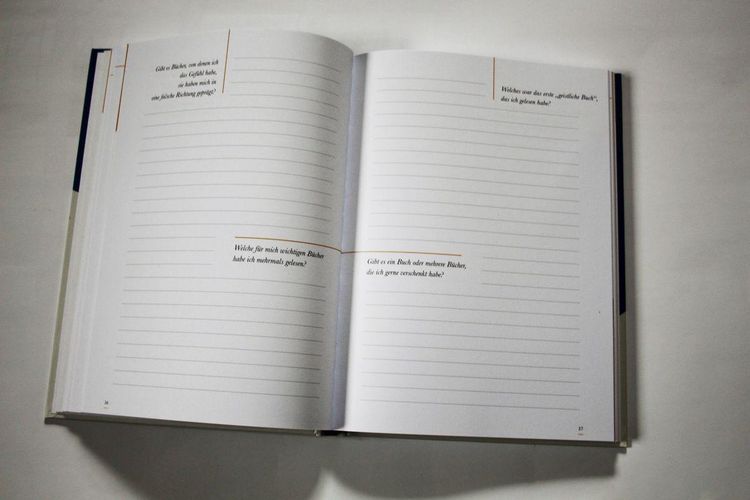 Gibt es Bücher, von denen ich
das Gefühl habe,
sie haben mich in
eine falsche Richtung geprägt?
Welche für mich wichtigen Bücher
habe ich mehrmals gelesen?
36
Welches war das erste „geistliche Buch“,
das ich gelesen habe?
Gibt es ein Buch oder mehrere Bücher,
die ich gerne verschenkt habe?
37